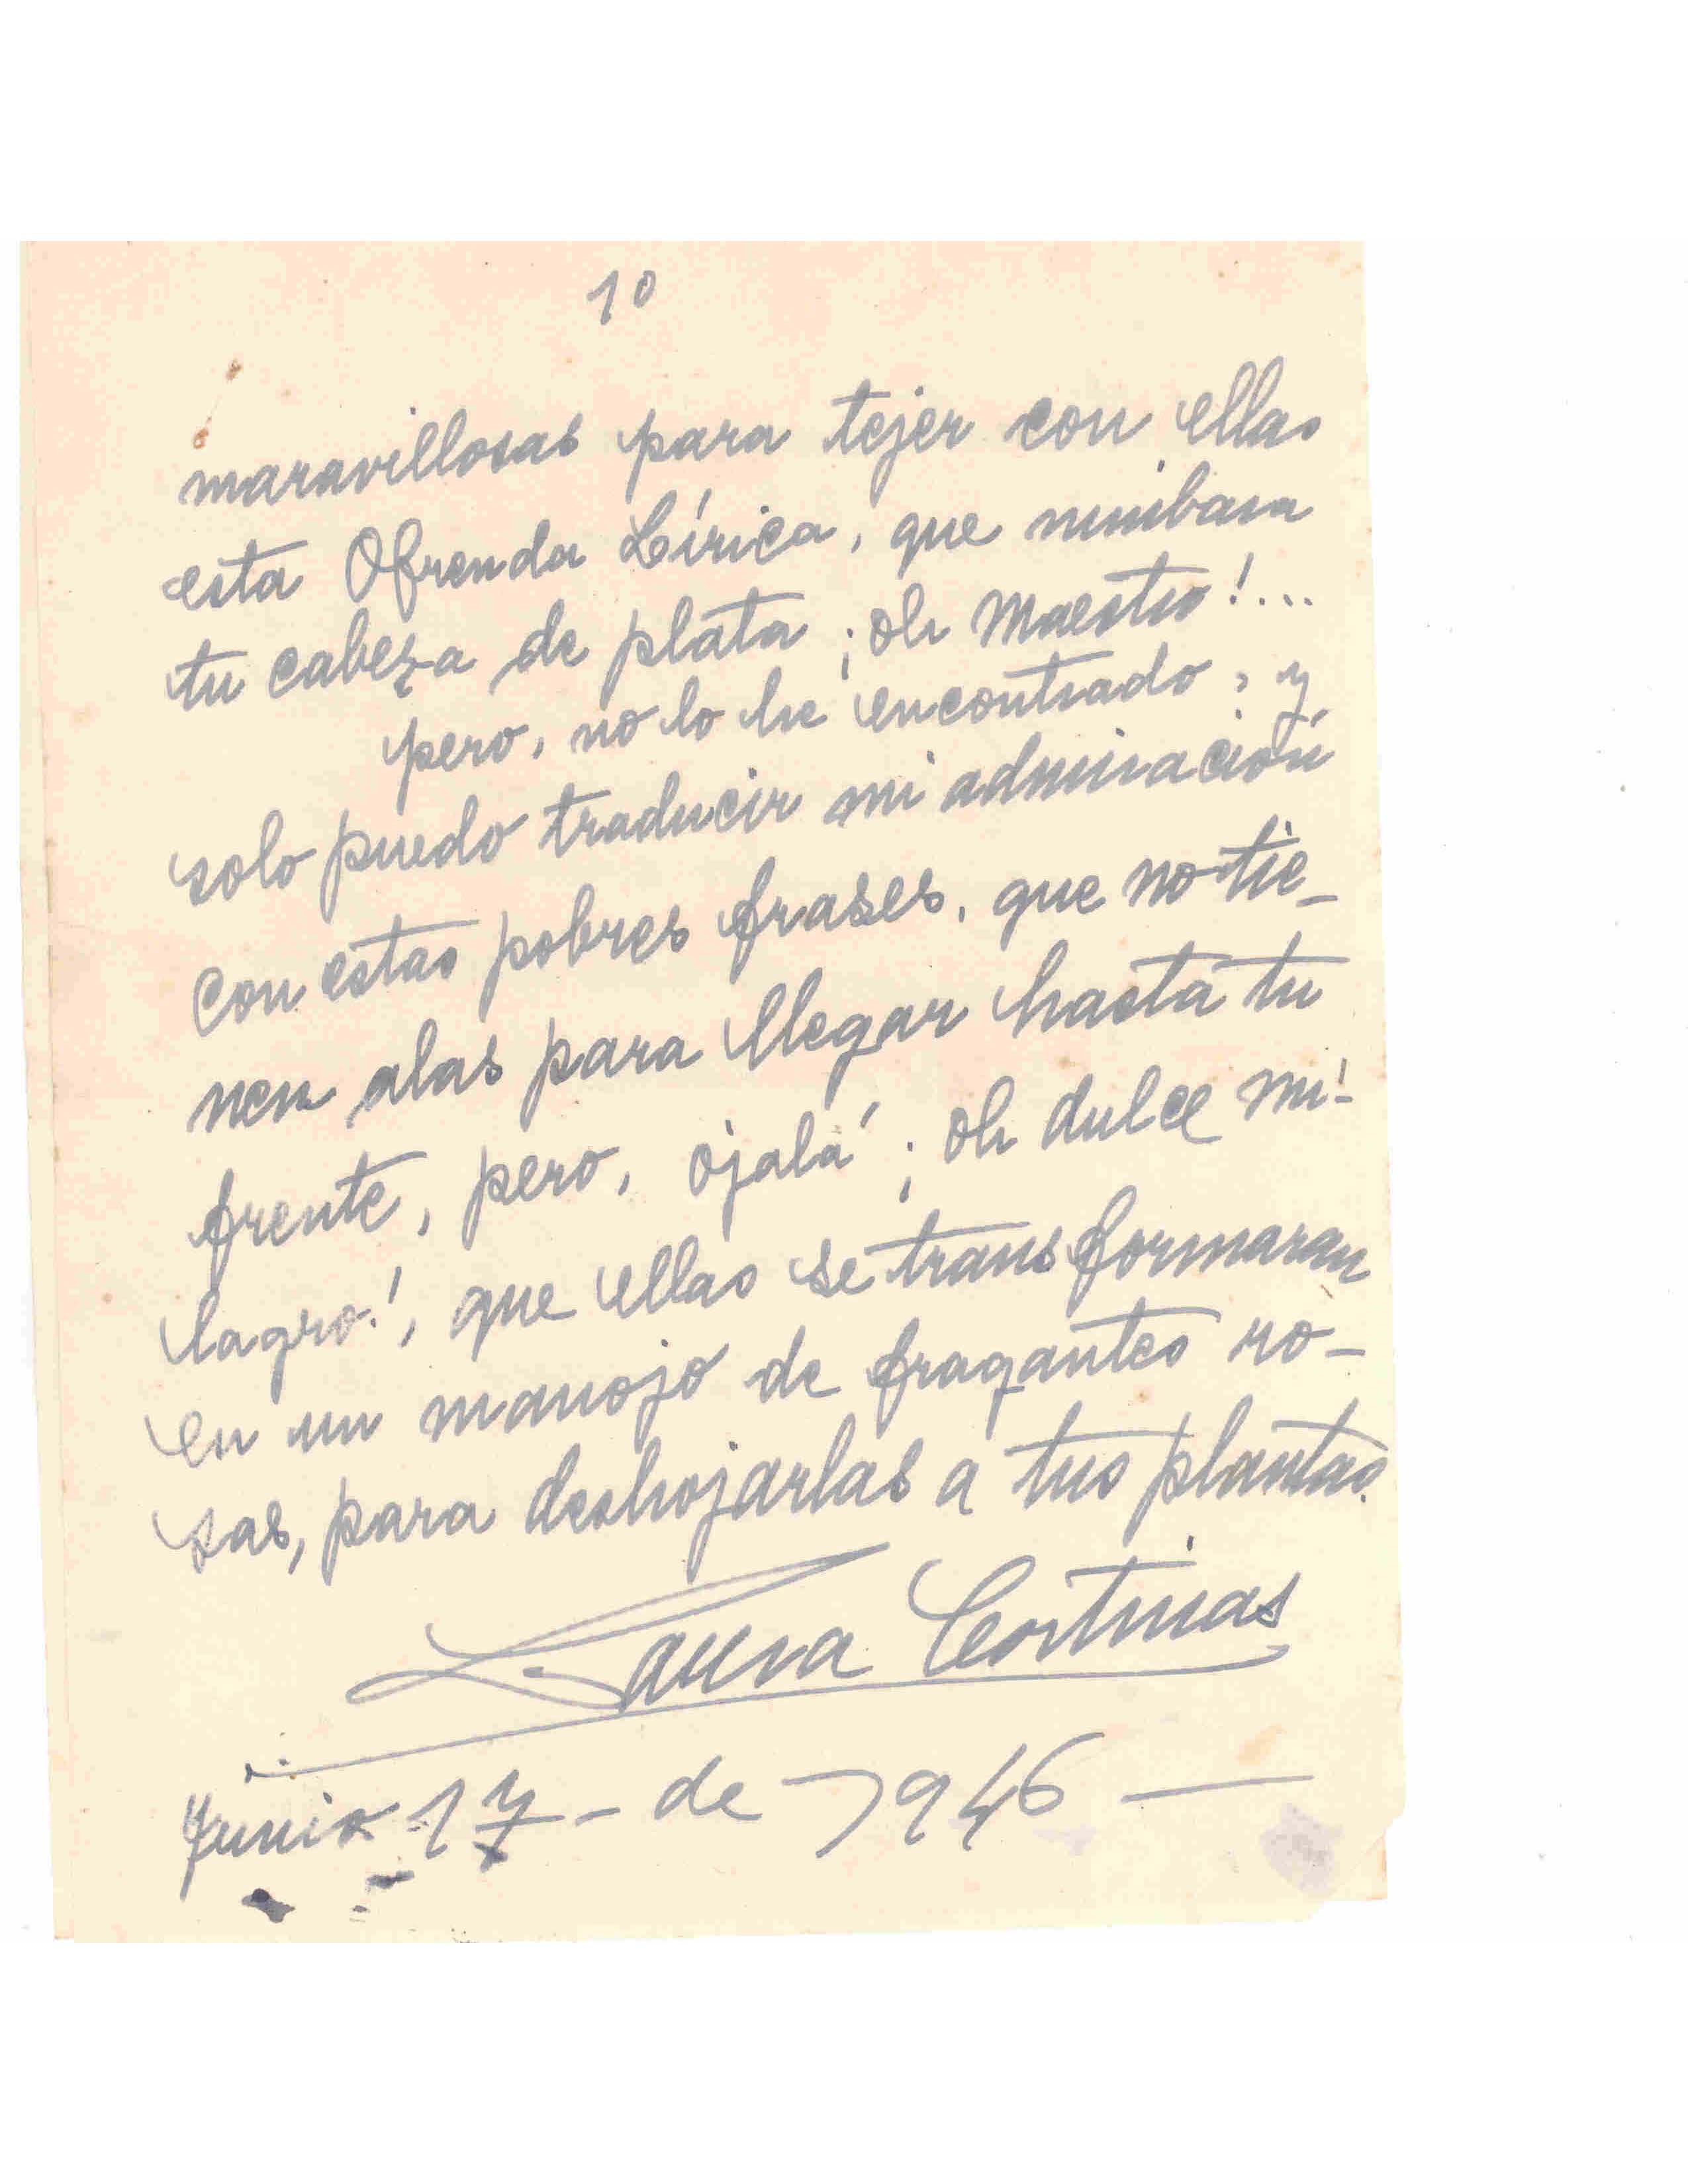 10
maravillosas para tejer con ellas
esta Ofrenda Lírica, que nimbara
tu cabeza de plata ¡oh Maestro!...
pero, no lo he encontrado, y
solo puedo traducir mi admiración
con estas pobres frases, que no tie-
nen alas para llegar hasta tu
frente, pero, ojalá ¡oh dulce mi-
lagro!, que ellas se transformaran
en un manojo de fragantes ro-
sas, para deshojarlas a tus plantas.
Laura Cortinas
Junio 17 - de 1946 -